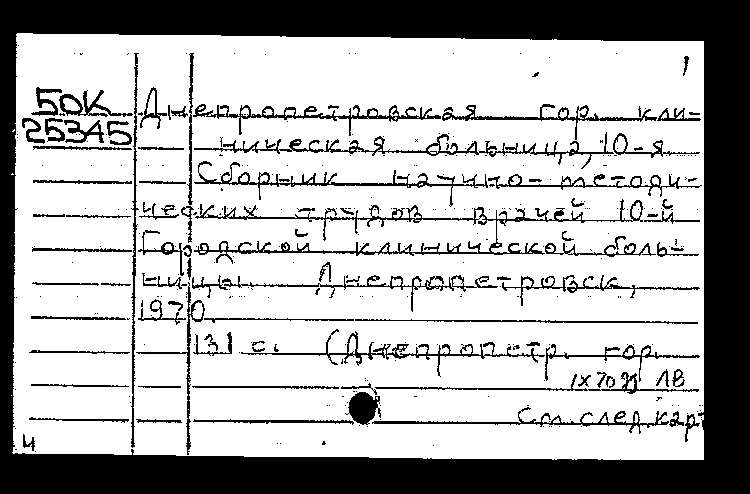 1
50К
25345
Днепропетровская гор. кли-
ническая больница, 10-я.
Сборник научно-методи-
ческих трудов врачей 10-й
Городской клинической боль-
ницы. Днепропетровск,
1970.
131 с. (Днепропетр. гор.
1X70 ЛВ
См. след. карт
4